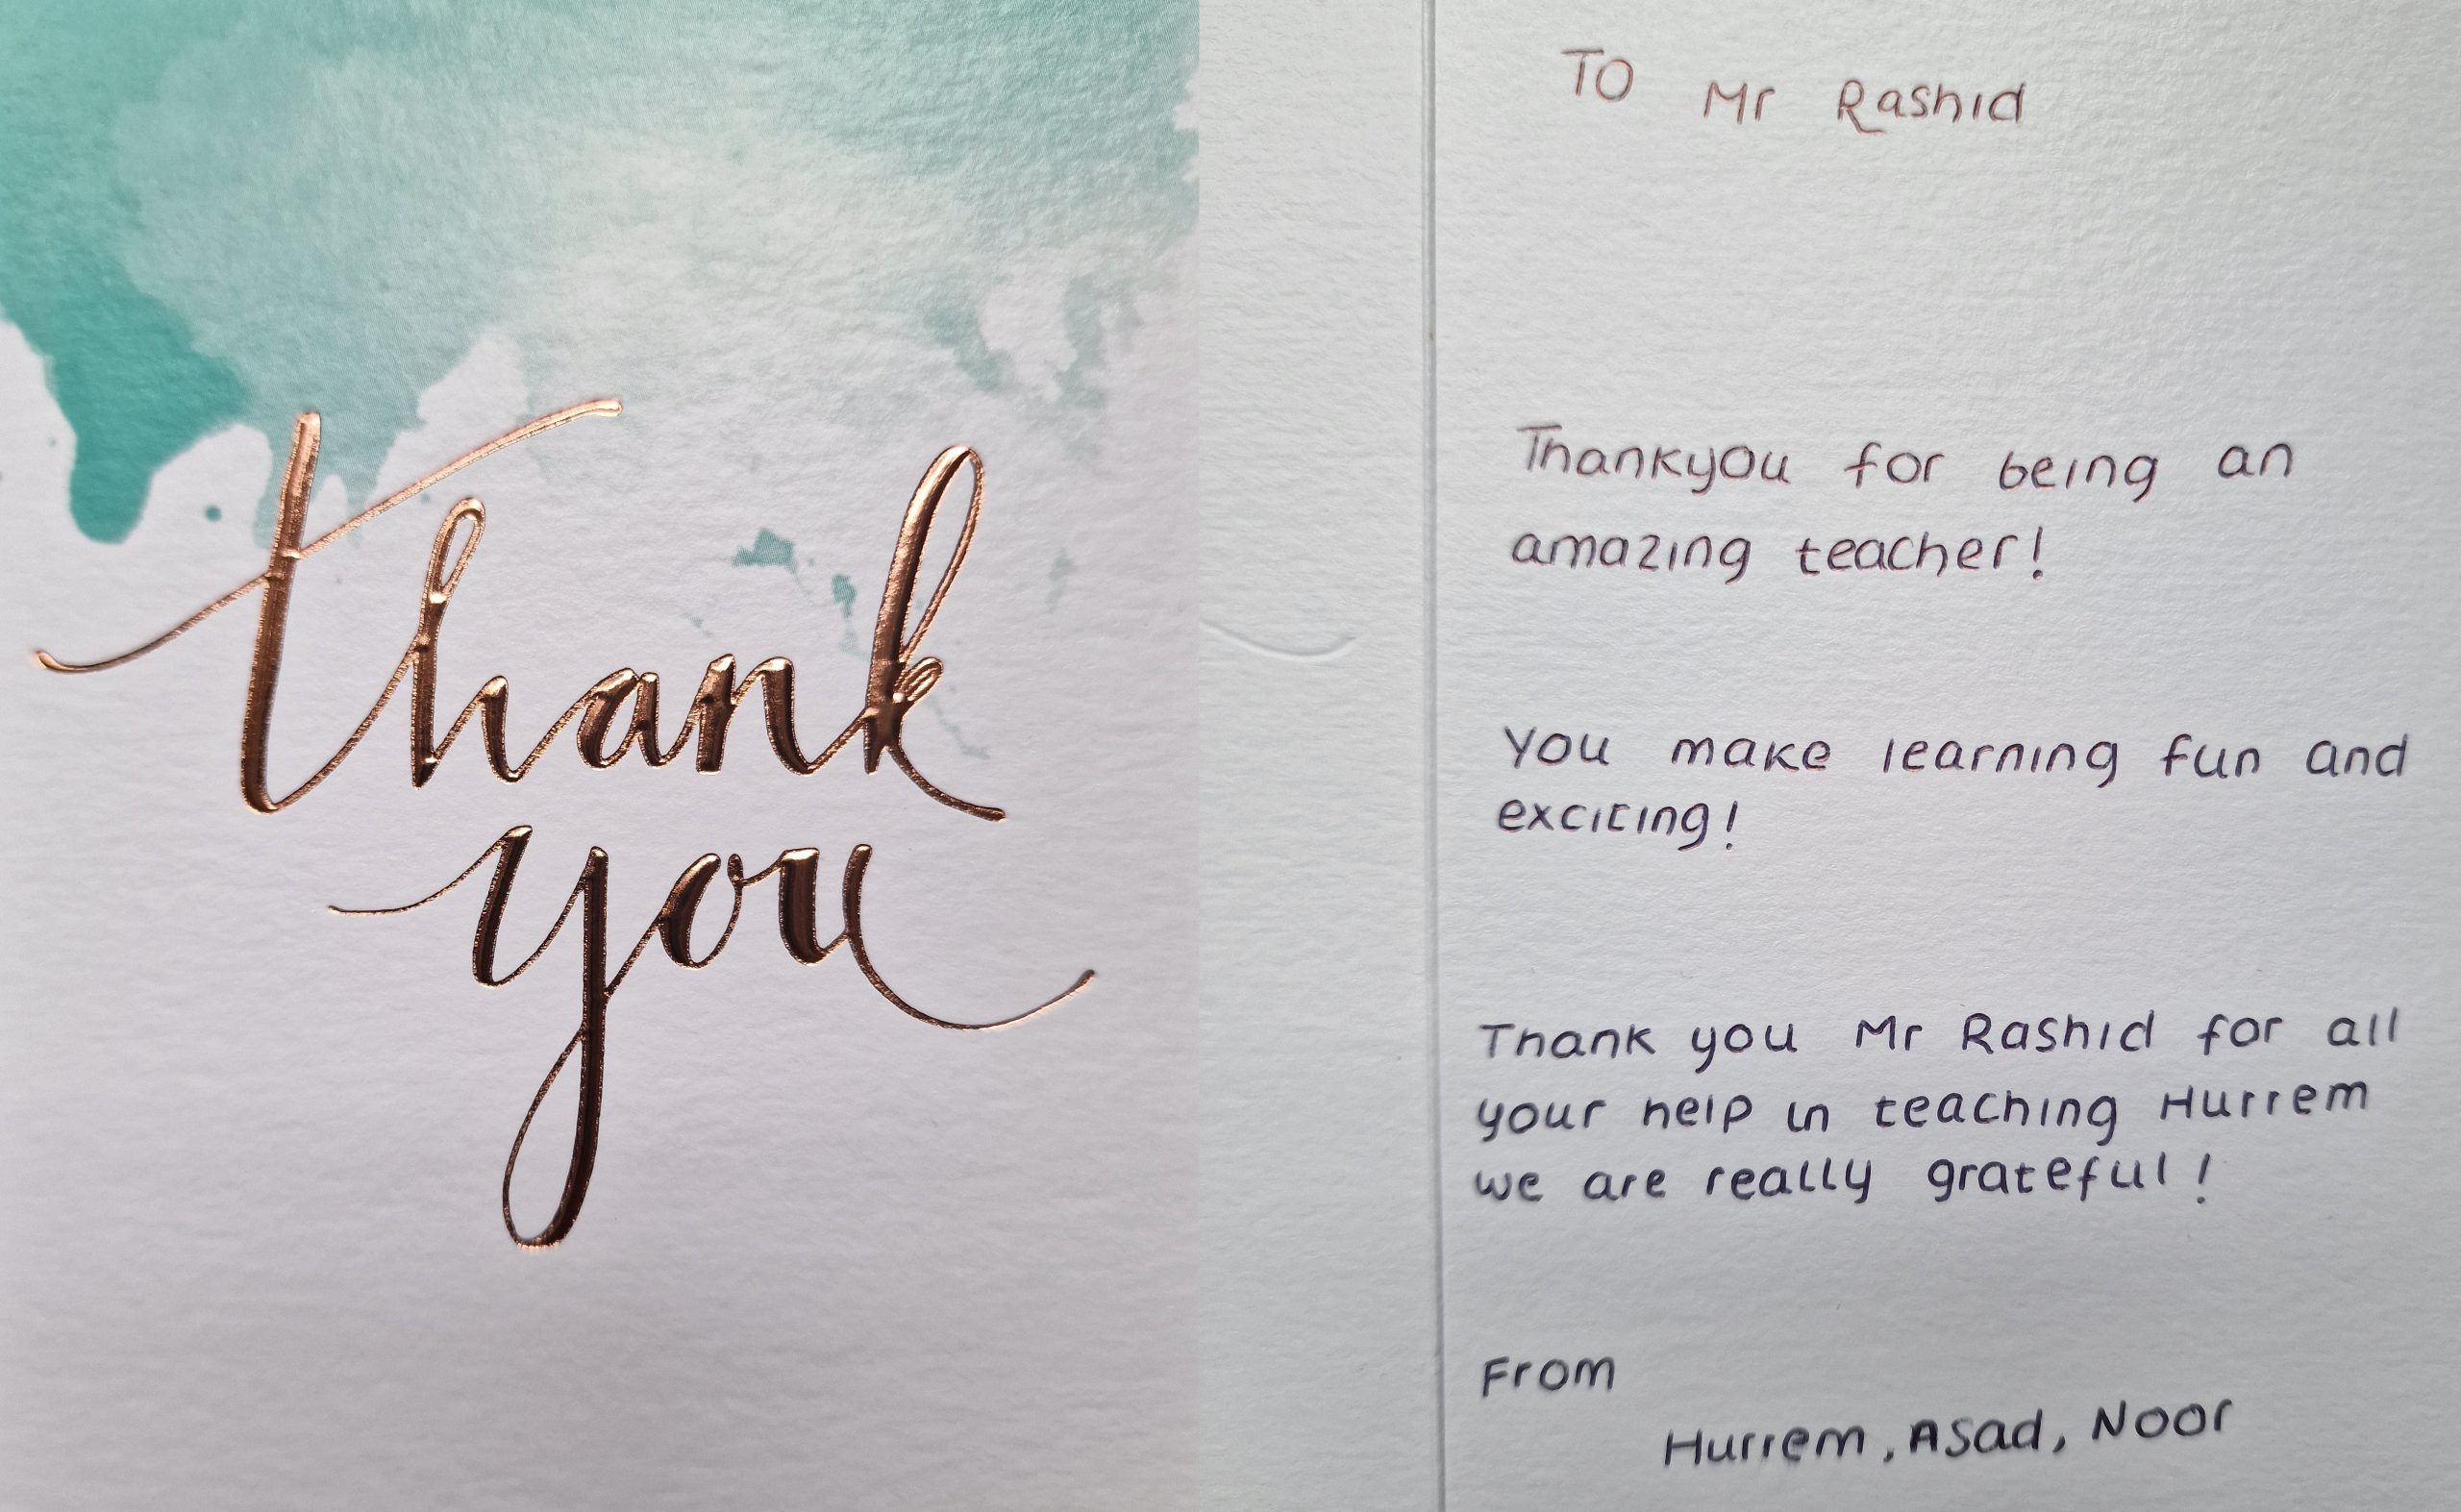 thank
you
To Mr Rashid
Thankyou for being an
amazing teacher!
You make learning fun and
exciting!
Thank you Mr Rashid for all
your help in teaching Hurrem
we are really grateful!
From
Hurrem, Asad, Noor